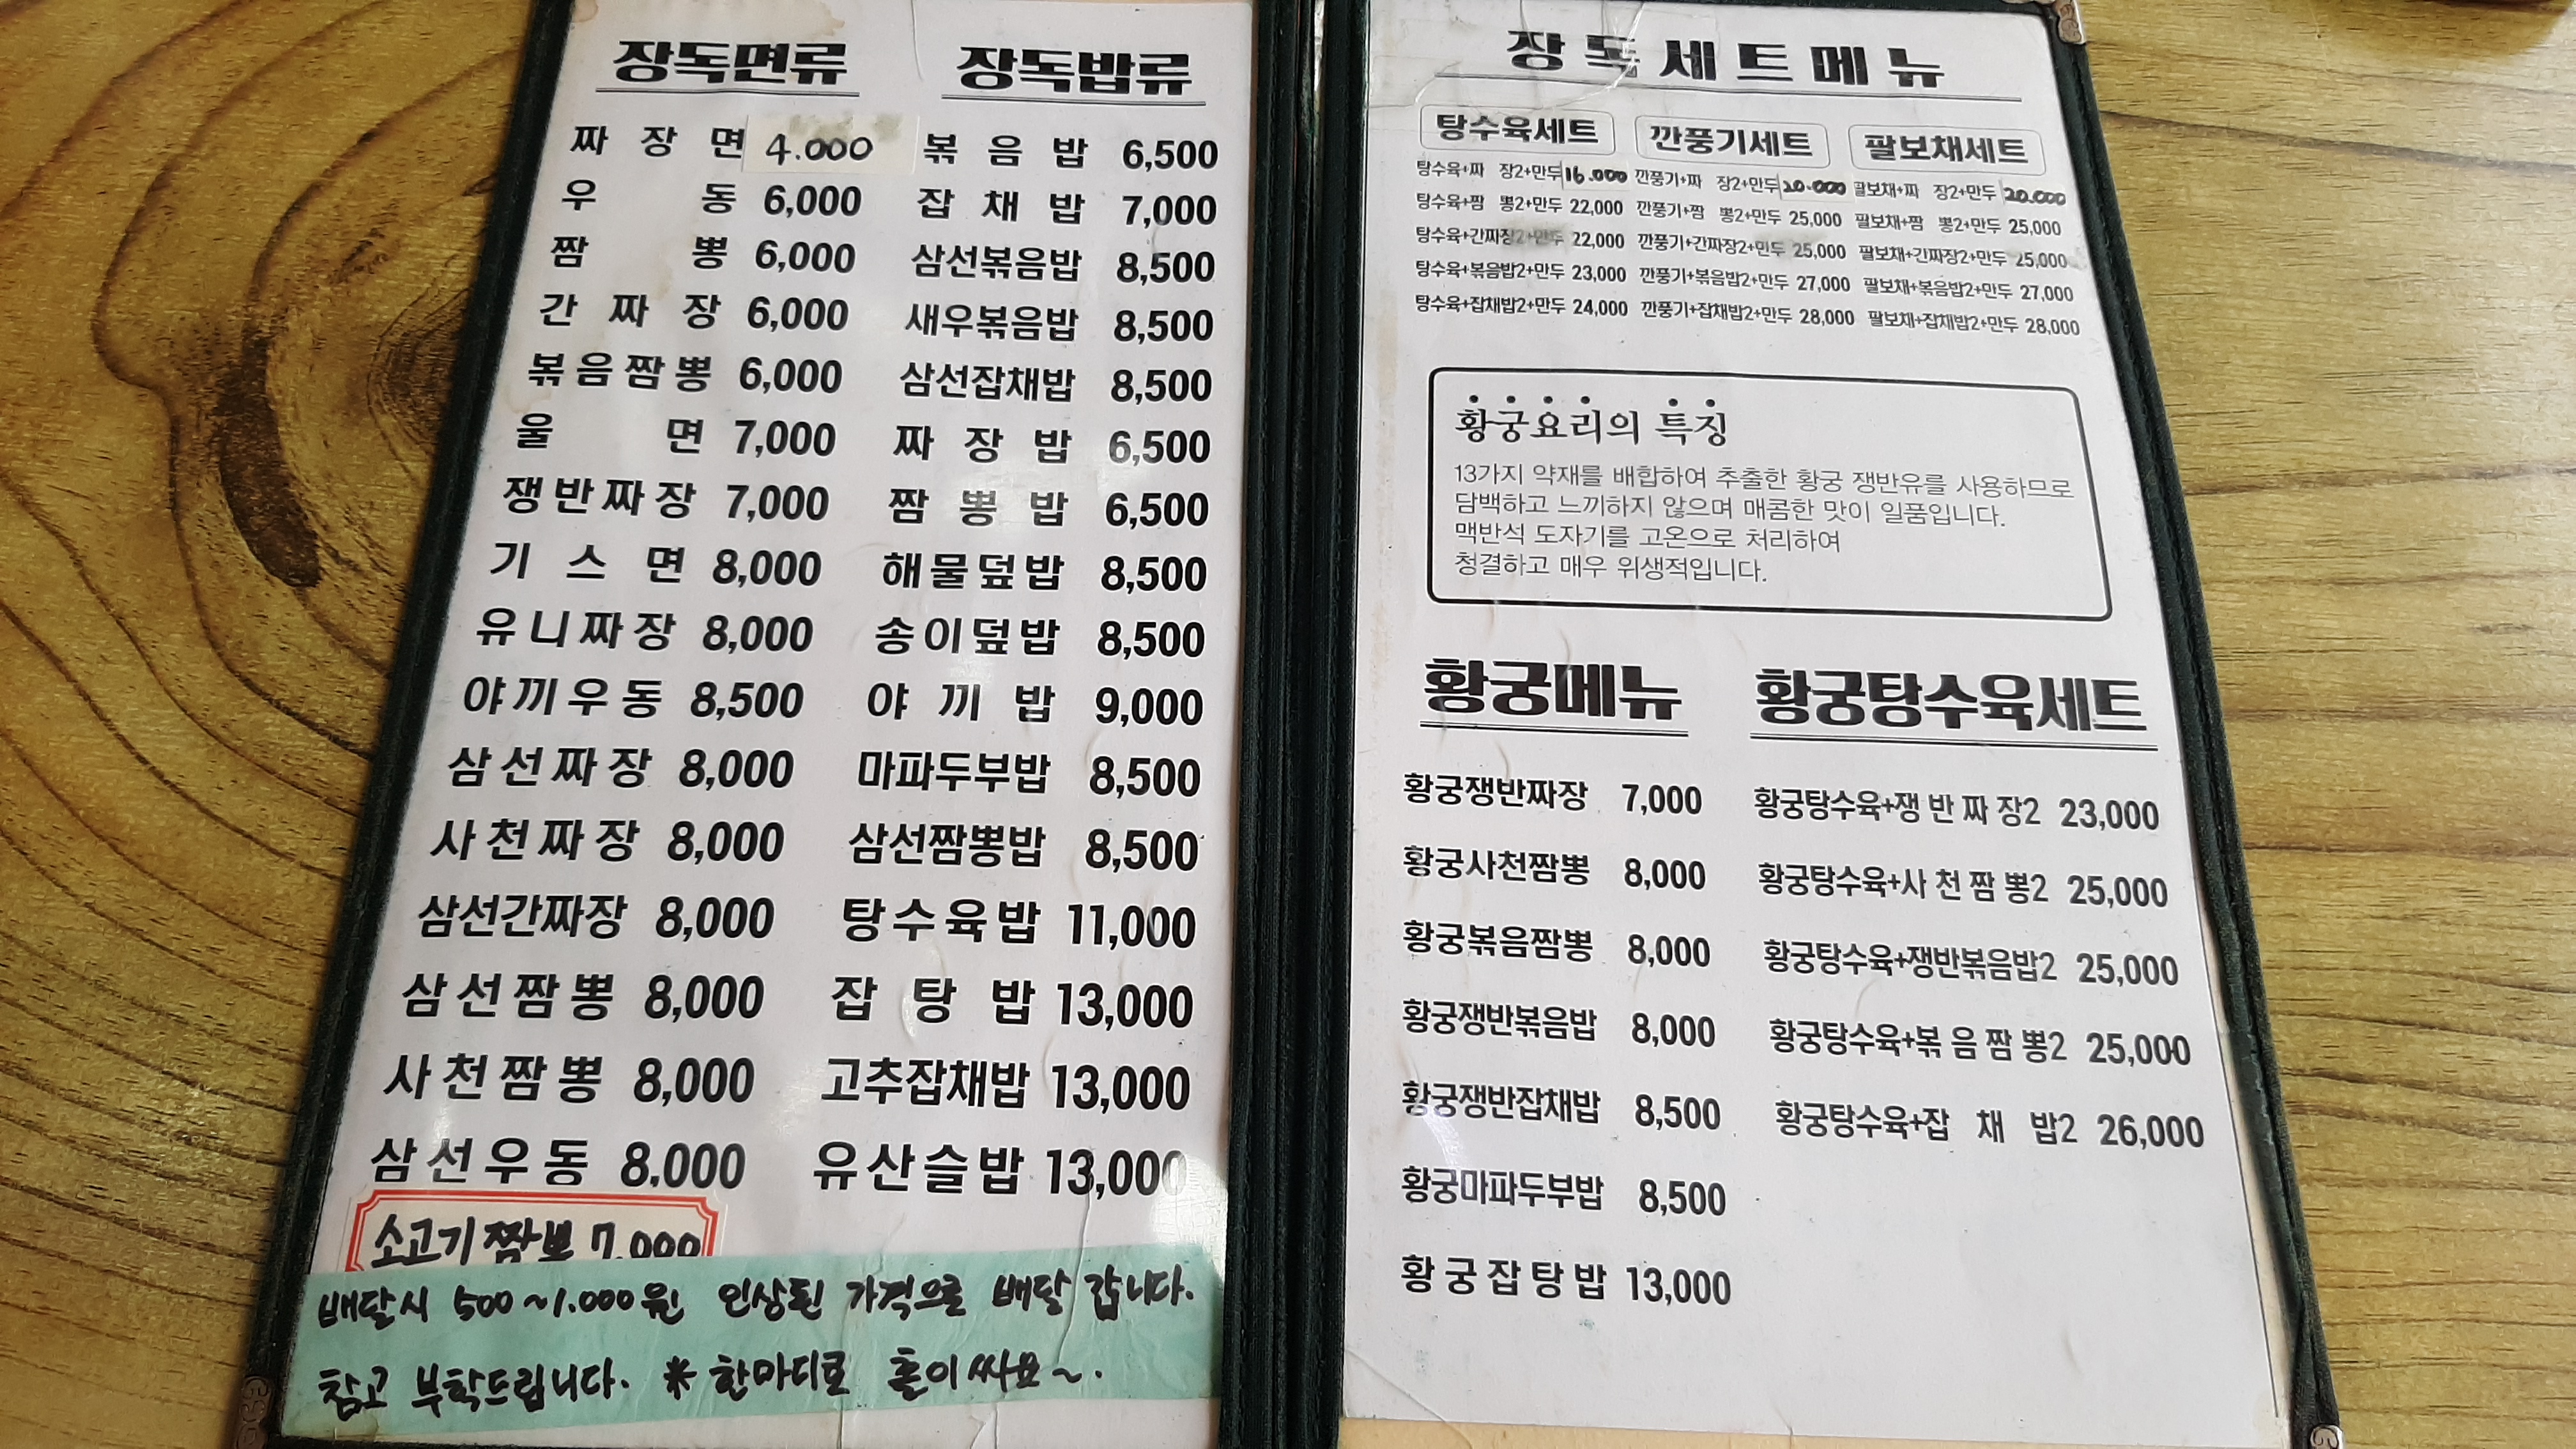 장독면류
짜장면 4.000
우동 6,000
짬뽕 6,000
간짜장 6,000
볶음짬뽕 6,000
울면 7,000
쟁반짜장 7,000
기스면 8,000
유니짜장 8,000
야끼우동 8,500
삼선짜장 8,000
사천짜장 8,000
삼선간짜장 8,000
삼선짬뽕 8,000
사천짬뽕 8,000
삼선우동 8,000
소고기 짬뽕 7.000
장독밥류
볶음밥 6,500
잡채밥 7,000
삼선볶음밥 8,500
새우볶음밥 8,500
삼선잡채밥 8,500
짜장밥 6,500
짬뽕밥 6,500
해물덮밥 8,500
송이덮밥 8,500
야끼밥 9,000
마파두부밥 8,500
삼선짬뽕밥 8,500
탕수육밥 11,000
잡탕밥 13,000
고추잡채밥 13,000
유산슬밥 13,000
배달시 500~1.000원 인상된 가격으로 배달 갑니다.
참고 부탁드립니다. * 한마디로 홀이 싸요~.
장독세트메뉴
탕수육세트
탕수육+짜 장2+만두 16.000
탕수육+짬 뽕2+만두 22,000
탕수육+간짜장2+만두 22,000
탕수육+볶음밥2+만두 23,000
탕수육+잡채밥2+만두 24,000
깐풍기세트
깐풍기+짜 장2+만두 20.000
깐풍기+짬 뽕2+만두 25,000
깐풍기+간짜장2+만두 25,000
깐풍기+볶음밥2+만두 27,000
깐풍기+잡채밥2+만두 28,000
팔보채세트
팔보채+짜 장2+만두 20.000
팔보채+짬 뽕2+만두 25,000
팔보채+간짜장2+만두 25,000
팔보채+볶음밥2+만두 27,000
팔보채+잡채밥2+만두 28,000
황궁요리의 특징
13가지 약재를 배합하여 추출한 황궁 쟁반유를 사용하므로
담백하고 느끼하지 않으며 매콤한 맛이 일품입니다.
맥반석 도자기를 고온으로 처리하여
청결하고 매우 위생적입니다.
황궁메뉴
황궁쟁반짜장 7,000
황궁사천짬뽕 8,000
황궁볶음짬뽕 8,000
황궁쟁반볶음밥 8,000
황궁쟁반잡채밥 8,500
황궁마파두부밥 8,500
황궁잡탕밥 13,000
황궁탕수육세트
황궁탕수육+쟁반짜장2 23,000
황궁탕수육+사천짬뽕2 25,000
황궁탕수육+쟁반볶음밥2 25,000
황궁탕수육+볶음짬뽕2 25,000
황궁탕수육+잡채밥2 26,000